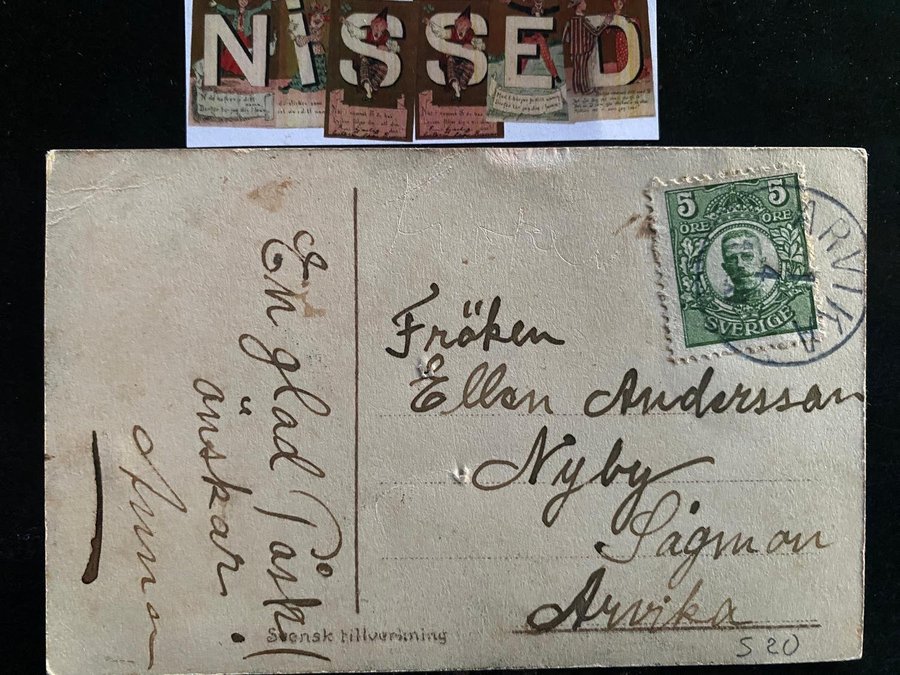 NISSED
En glad Påsk
önskar
Anna
Svensk tillverkning
5 5
ÖRE ÖRE
SVERIGE
ARVIKA
Fröken
Ellen Andersson
Nyby
Sågmon
Arvika
S 20